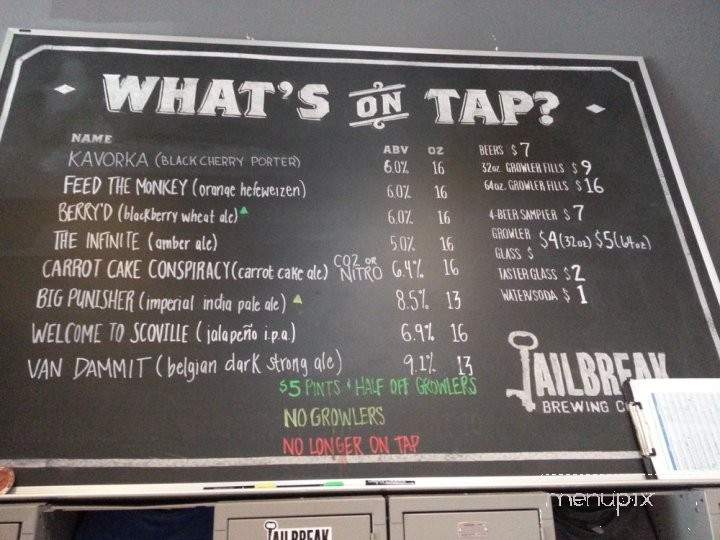 WHAT'S ON TAP?
NAME ABV OZ
KAVORKA (BLACK CHERRY PORTER) 6.0% 16
FEED THE MONKEY (orange hefeweizen) 6.0% 16
BERRY'D (blackberry wheat ale) 6.0% 16
THE INFINITE (amber ale) 5.0% 16
CARROT CAKE CONSPIRACY (carrot cake ale) CO2 OR NITRO 6.4% 16
BIG PUNISHER (imperial india pale ale) 8.5% 13
WELCOME TO SCOVILLE (jalapeño i.p.a.) 6.9% 16
VAN DAMMIT (belgian dark strong ale) 9.1% 13
$5 PINTS & HALF OFF GROWLERS
NO GROWLERS
NO LONGER ON TAP
BEERS $7
32oz. GROWLER FILLS $9
64oz. GROWLER FILLS $16
4-BEER SAMPLER $7
GROWLER $4 (32oz) $5 (64oz)
GLASS $
TASTER GLASS $2
WATER/SODA $1
JAILBREAK
BREWING C
menupix
JAILBREAK